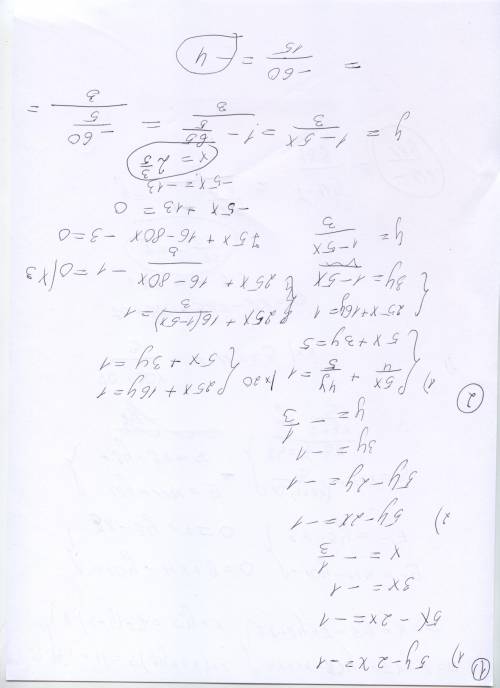 ① 1) 5y-2x=-1
5x-2x=-1
3x=-1
x=-1/3
2) 5y-2x=-1
5y-2y=-1
3y=-1
y=-1/3
②
1) { 5x/4 + 4y/5 = 1 |x20 { 25x+16y=1
5x+3y=5 { 5x+3y=1
{ 25x+16y=1 { 25x + 16(1-5x)/3 = 1
3y=1-5x { 25x + 16-80x/3 - 1=0 |x3
y= 1-5x/3 75x+16-80x-3=0
-5x+13=0
-5x=-13
x=2 3/5
y= 1-5x/3 = 1-65/5/3 = -60/5/3 =
= -60/15 = -4